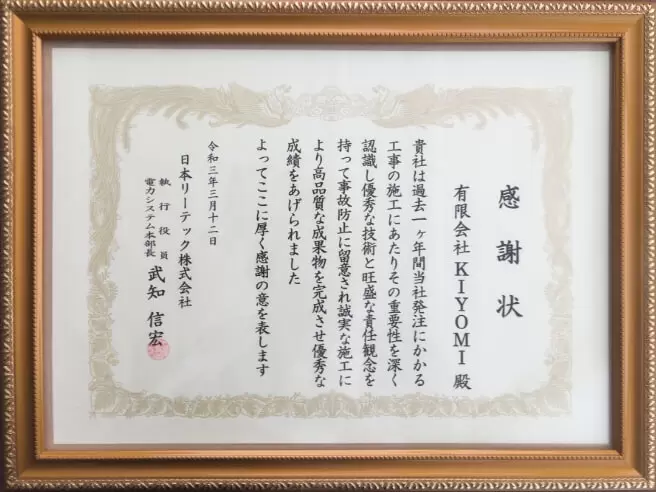 感謝状
有限会社 KIYOMI 殿
貴社は過去一ヶ年間当社発注にかかる
工事の施工にあたりその重要性を深く
認識し優秀な技術と旺盛な責任観念を
持って事故防止に留意され誠実な施工に
より高品質な成果物を完成させ優秀な
成績をあげられました
よってここに厚く感謝の意を表します
令和三年三月十二日
日本リーテック株式会社
執行役員
電力システム本部長 武知 信宏